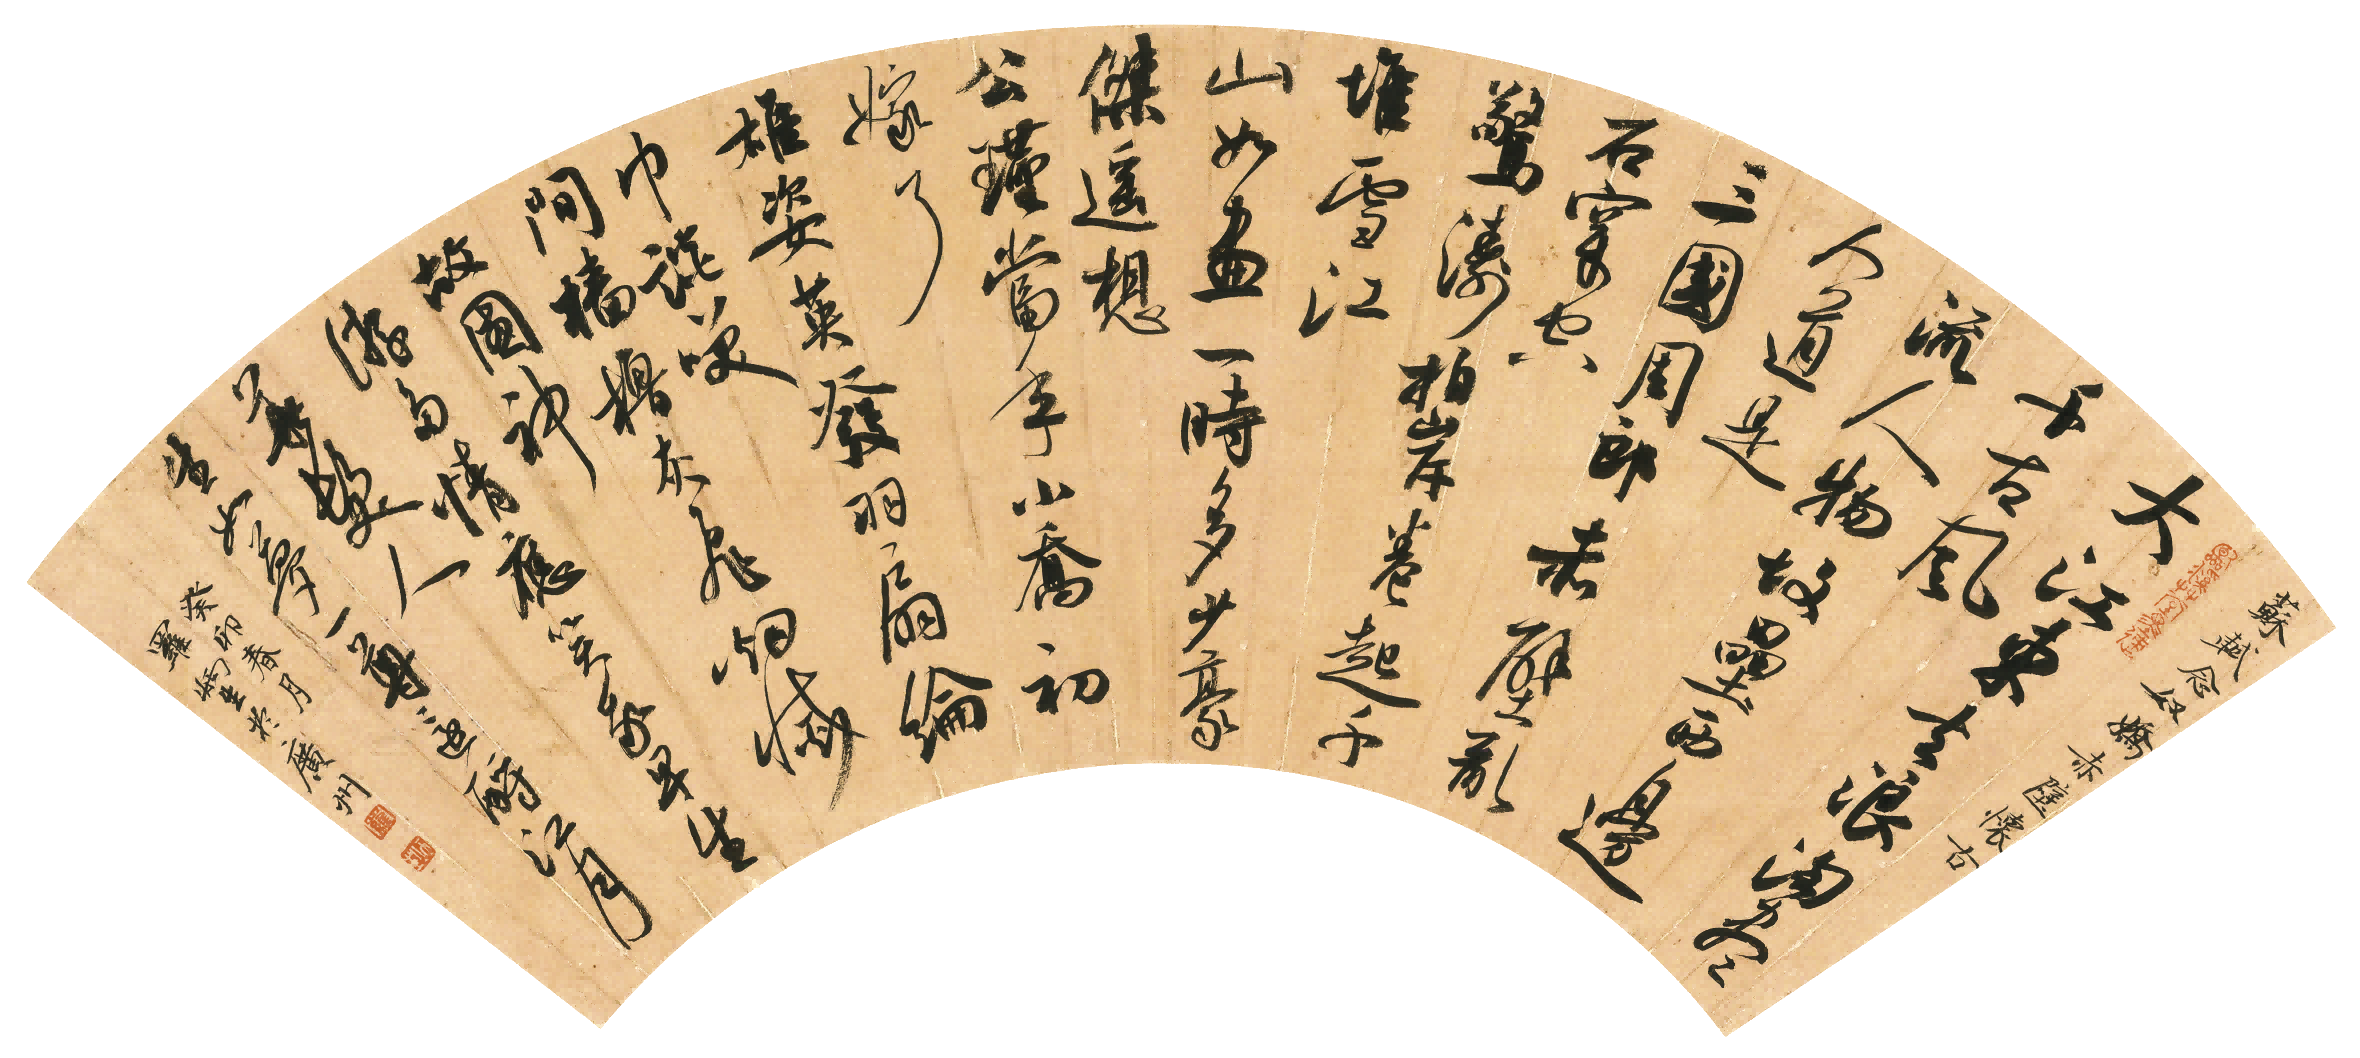 蘇軾念奴嬌赤壁懷古
大江東去浪淘盡
千古風
流人物故壘西邊
人道是
三國周郎赤壁亂
石穿空
驚濤拍岸卷起千
堆雪江
山如畫一時多少豪
傑遙想
公瑾當年小喬初
嫁了
雄姿英發羽扇綸
巾談笑
間檣櫓灰飛烟滅
故國神
遊多情應笑我早生
華髮人
生如夢一尊還酹江月
癸卯春月
羅炳生於廣州